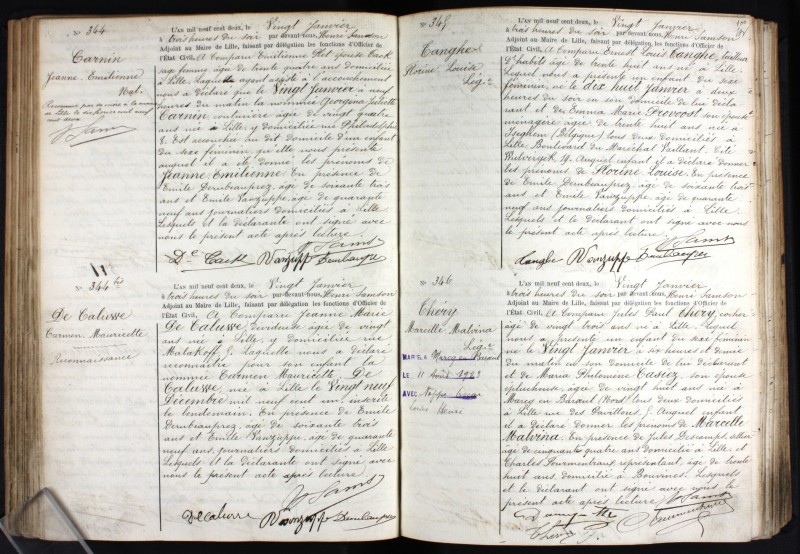 N° 344
Carnin
Jeanne Emilienne
Nat.
L'AN mil neuf cent deux, le Vingt Janvier
à trois heures du soir par devant nous, Henri Samson
Adjoint au Maire de Lille, faisant par délégation les fonctions d'Officier de
l'État Civil, A Comparu Emilienne
sage femme, âgée de trente quatre ans domiciliée
à Lille, Laquelle ayant assisté à l'accouchement
nous a déclaré que le Vingt Janvier à neuf
heures du matin la nommée Georgina Juliette
Carnin couturière âgée de vingt quatre
ans née à Lille y domiciliée rue Philadelphie
8. Est accouchée au dit domicile d'un enfant
du sexe féminin qu'elle nous présente
auquel il a été donné les prénoms de
Jeanne Emilienne En présence de
Emile Dernbeauprez, âgé de soixante trois
ans et Emile Vanzuppe, âgé de quarante
neuf ans journaliers domiciliés à Lille
Lesquels et la déclarante ont signé avec
nous le présent acte après lecture.
H Samson
De Cack Vanzuppe Dernbeauprez
N° 344 bis
De Caluwe
Carmen Mauricette
Reconnaissance
L'AN mil neuf cent deux, le Vingt Janvier
à trois heures du soir par-devant-nous, Henri Samson
Adjoint au Maire de Lille, faisant par délégation les fonctions d'Officier de
l'État Civil, A Comparu Jeanne Marie
De Caluwe, dévideuse âgée de vingt
ans née à Lille, y domiciliée rue
Malakoff J. Laquelle nous a déclaré
reconnaître pour son enfant la
nommée Carmen Mauricette De
Caluwe, née à Lille le Vingt neuf
Décembre mil neuf cent un inscrite
le lendemain. En présence de Emile
Dernbeauprez, âgé de soixante trois
ans et Emile Vanzuppe, âgé de quarante
neuf ans, journaliers domiciliés à Lille
Lesquels et la déclarante ont signé avec
nous le présent acte après lecture
H Samson
De Caluwe Vanzuppe Dernbeauprez
N° 345
Tanghe
Florine Louise
Lég.e
L'AN mil neuf cent deux, le Vingt Janvier
à trois heures du soir par devant nous, Henri Samson
Adjoint au Maire de Lille, faisant par délégation les fonctions d'Officier de
l'État Civil, A Comparu Ernest Louis Tanghe, tailleur
d'habits âgé de trente huit ans né à Lille
Lequel nous a présenté un enfant du sexe
féminin, né le dix huit Janvier à deux
heures du soir en son domicile de lui décla
rant et de Emma Marie Provoost son épouse
ménagère âgée de trente huit ans née à
Iseghem (Belgique) tous deux domiciliés à
Lille Boulevard du Maréchal Vaillant. Cité
19. Auquel enfant il a déclaré donner
les prénoms de Florine Louise. En présence
de Emile Dernbeauprez, âgé de soixante trois
ans et Emile Vanzuppe, âgé de quarante
neuf ans journaliers domiciliés à Lille.
Lesquels et le déclarant ont signé avec
nous le présent acte après lecture.
H Samson
Tanghe Vanzuppe Dernbeauprez
N° 346
Théry
Marcelle Malvina
Lég.e
MARIÉ A Marcq en Baroeul
LE 11 Août 1923
AVEC
Louis Henri
L'AN mil neuf cent deux, le Vingt Janvier
à trois heures du soir par-devant-nous, Henri Samson
Adjoint au Maire de Lille, faisant par délégation les fonctions d'Officier de
l'État Civil, A Comparu Jules Paul Théry, cocher
âgé de vingt trois ans né à Lille Lequel
nous a présenté un enfant du sexe féminin
né le Vingt Janvier à six heures et demie
du matin en son domicile de lui déclarant
et de Marie Philomène Casiez, son épouse
éplucheuse, âgée de vingt huit ans née à
Marcq en Baroeul (Nord) tous deux domiciliés
à Lille rue des Pavillons, J. Auquel enfant
il a déclaré donner les prénoms de Marcelle
Malvina. En présence de Jules Descamps,
âgé de cinquante quatre ans domicilié à Lille et
Charles Fourmentraux, représentant, âgé de trente
huit ans, domicilié à Bouvines. Lesquels
et le déclarant ont signé avec nous le
présent acte après lecture. H Samson
Théry J.